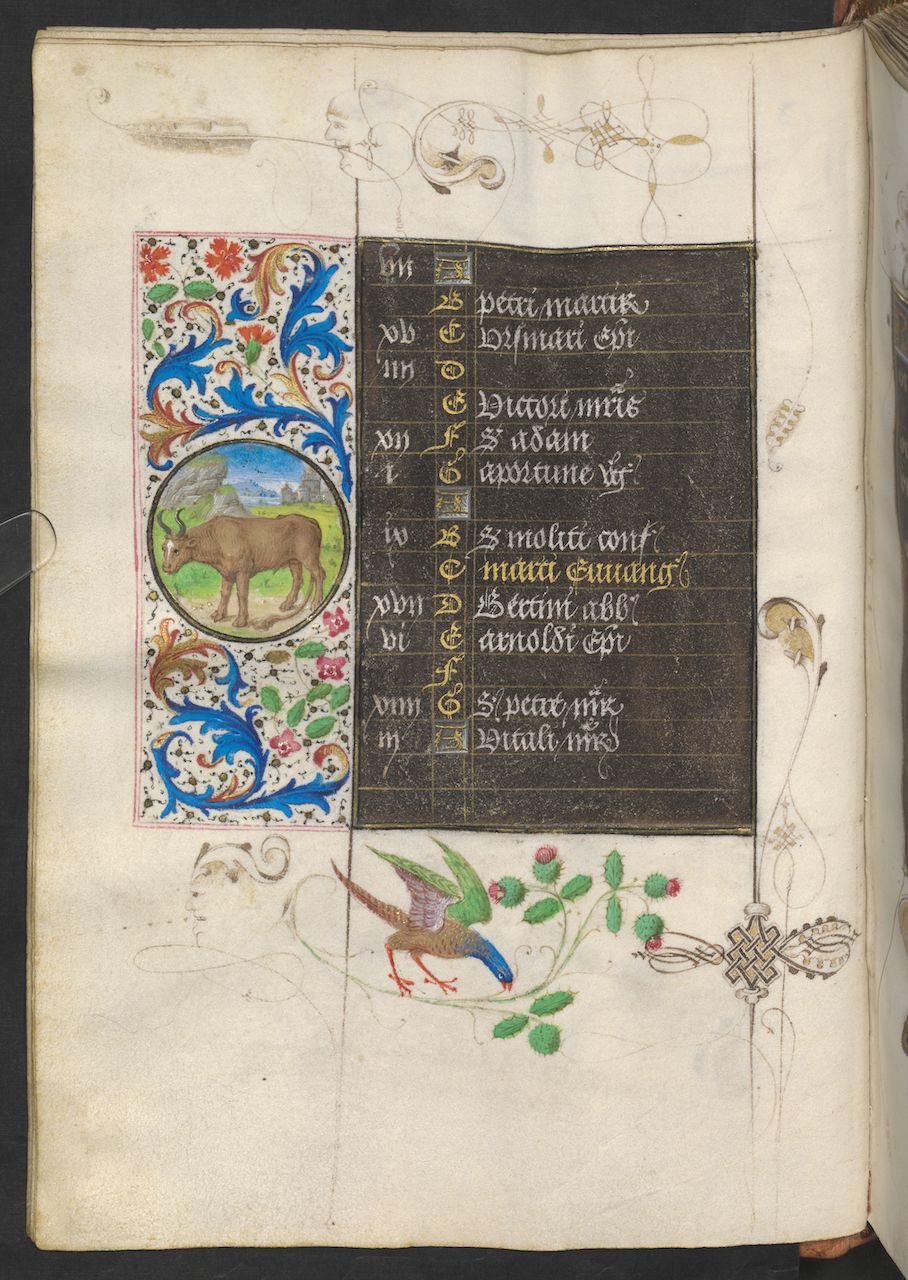 viii A
B petri martir
xv C Vrsmari Epi
iiii D
E Victori mris
xii F S adam
i G aportune vg
A
ix B S moliti conf
C marci Euuang
xvii D Bertini abb
vi E arnoldi Epi
F
xiiii G S petri mr
iii A Vitali mr